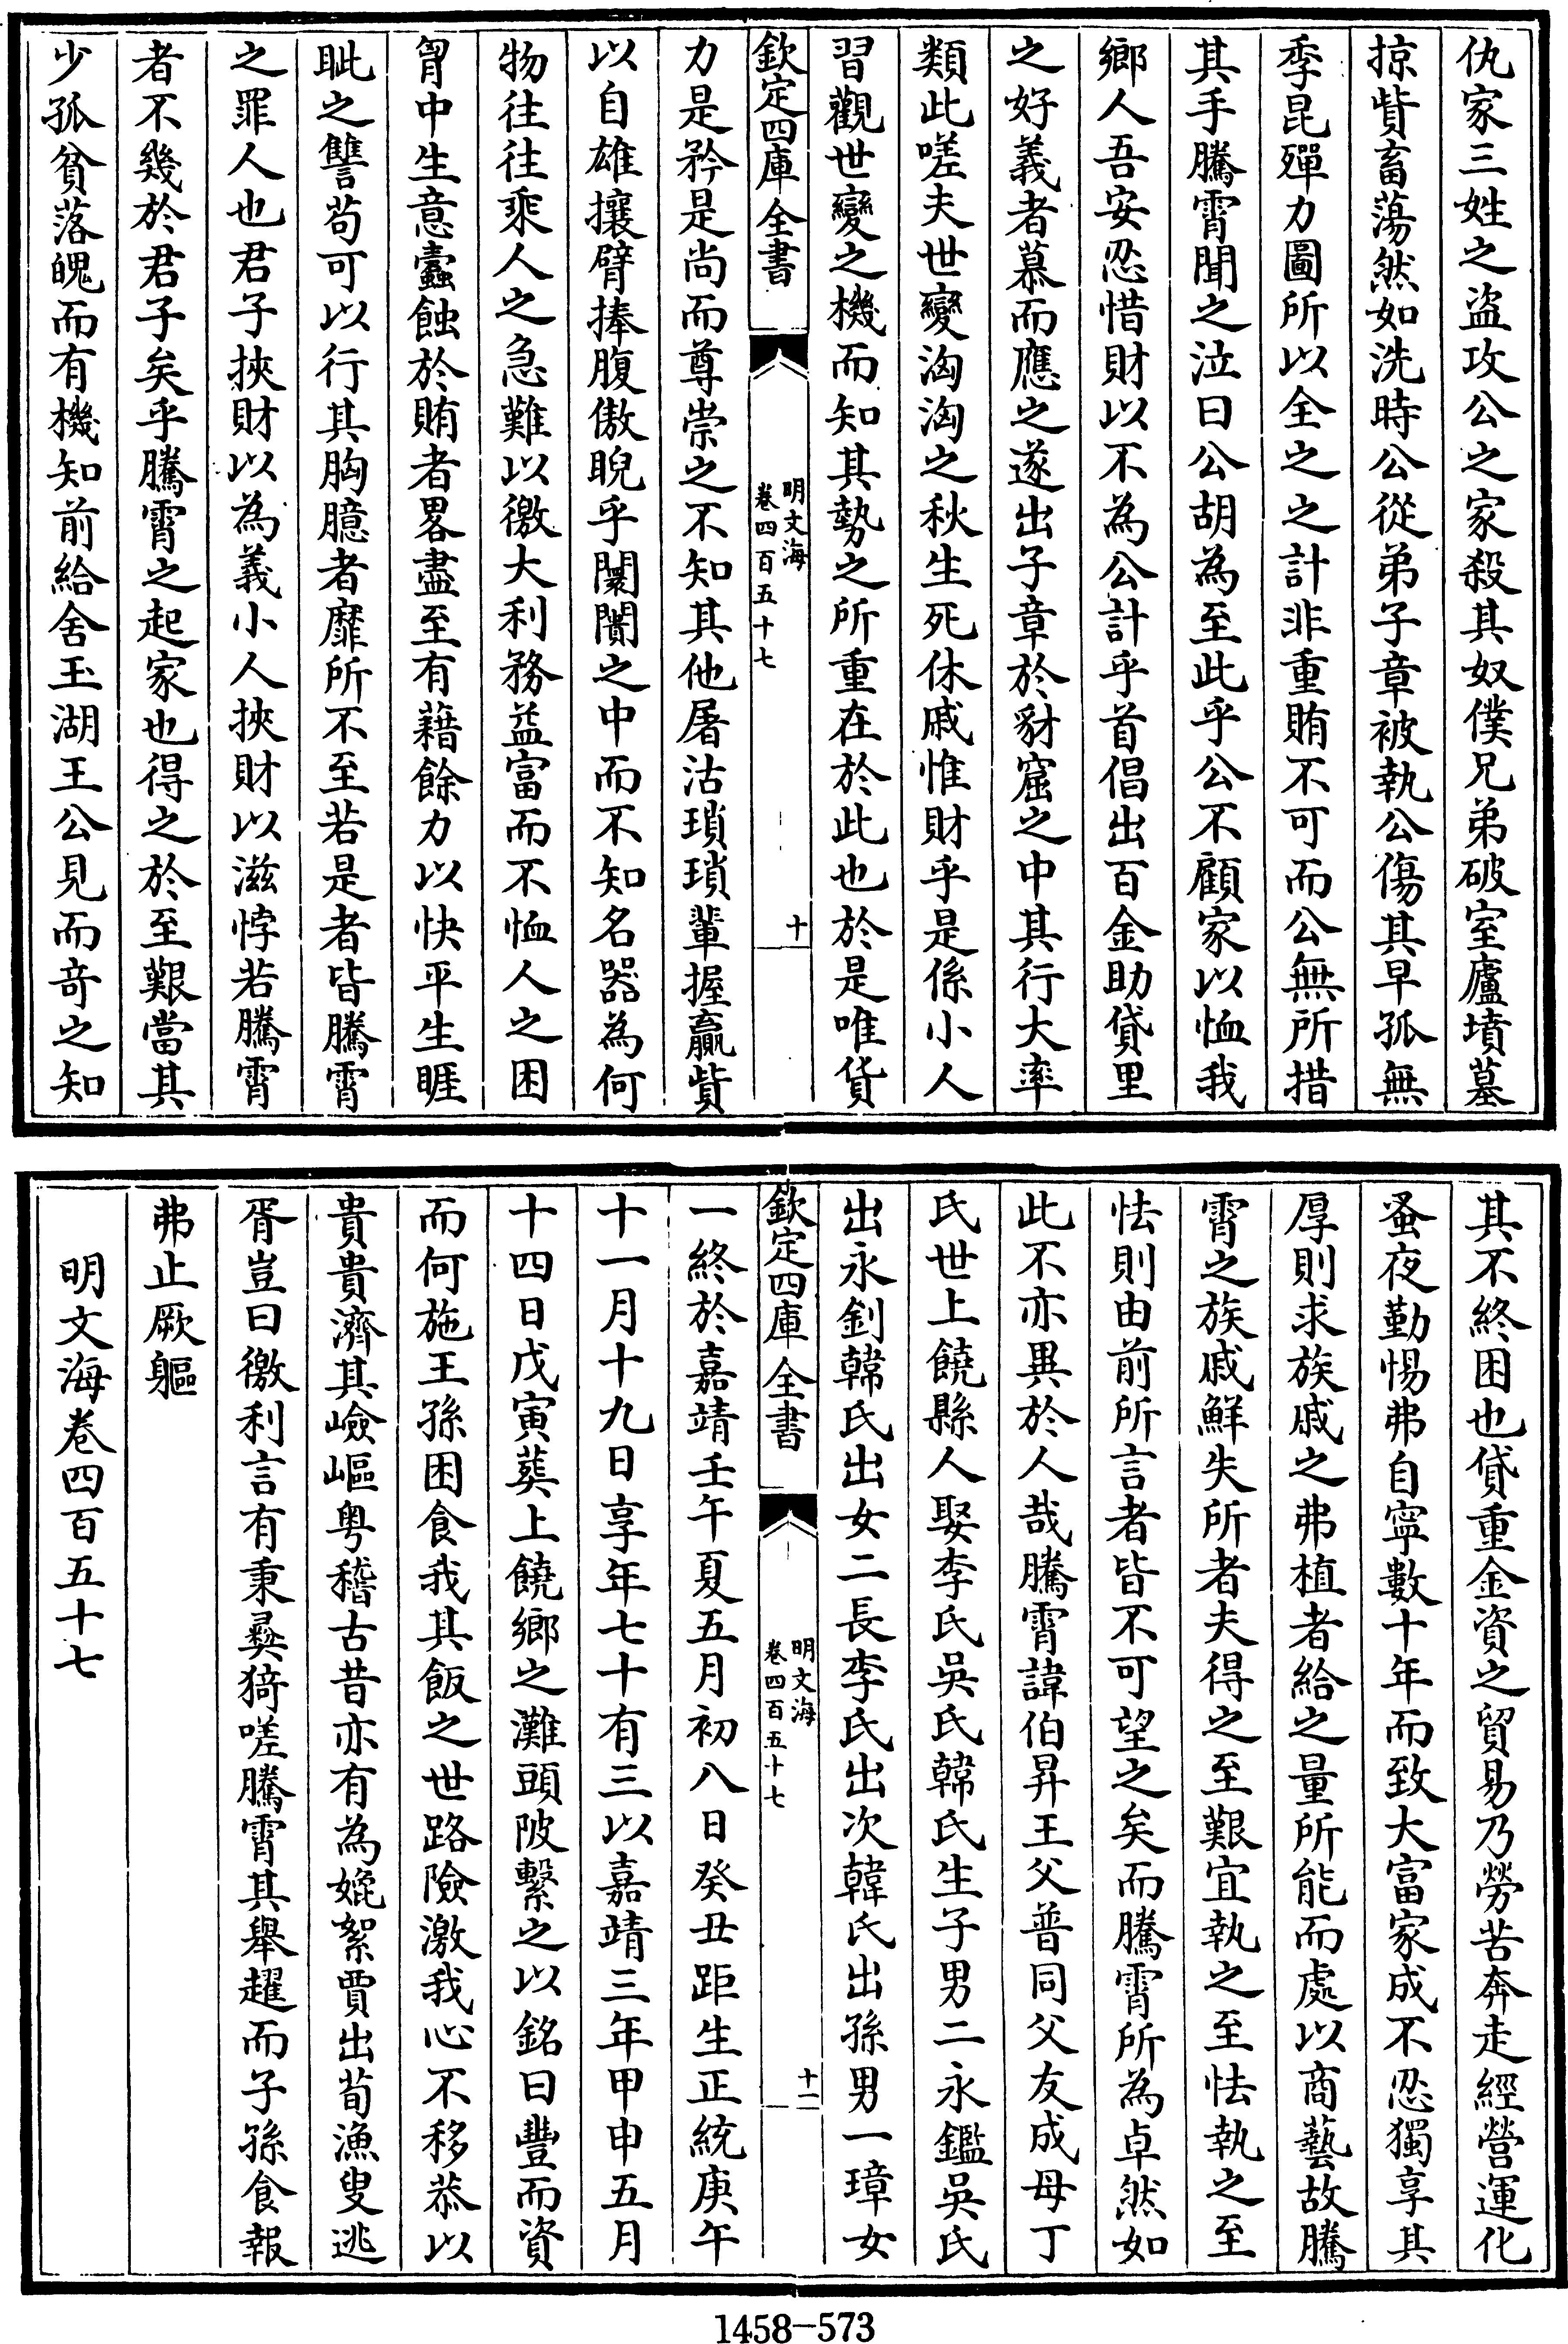 仇家三姓之盜攻公之家殺其奴僕兄弟破室廬墳墓
掠貲畜蕩然如洗時公從弟子章被執公傷其早孤無
季昆殫力圖所以全之之計非重賄不可而公無所措
其手騰霄聞之泣曰公胡為至此乎公不顧家以恤我
鄉人吾安忍惜財以不為公計乎首倡出百金助貸里
之好義者慕而應之遂出子章於豺窟之中其行大率
類此嗟夫世變洶洶之秋生死休戚惟財乎是係小人
習觀世變之機而知其勢之所重在於此也於是唯貨
欽定四庫全書
明文海
卷四百五十七
十
力是矜是尚而尊崇之不知其他屠沽瑣瑣輩握贏貲
以自雄攘臂捧腹傲睨乎闤闠之中而不知名器為何
物往往乘人之急難以徼大利務益富而不恤人之困
胷中生意蠹蝕於賄者畧盡至有藉餘力以快平生睚
眦之讐苟可以行其胸臆者靡所不至若是者皆騰霄
之罪人也君子挾財以為義小人挾財以滋悖若騰霄
者不幾於君子矣乎騰霄之起家也得之於至艱當其
少孤貧落魄而有機知前給舍玉湖王公見而奇之知
其不終困也貸重金資之貿易乃勞苦奔走經營運化
蚤夜勤惕弗自寧數十年而致大富家成不忍獨享其
厚則求族戚之弗植者給之量所能而處以商藝故騰
霄之族戚鮮失所者夫得之至艱宜執之至怯執之至
怯則由前所言者皆不可望之矣而騰霄所為卓然如
此不亦異於人哉騰霄諱伯昇王父普同父友成母丁
氏世上饒縣人娶李氏吳氏韓氏生子男二永鑑吳氏
出永釗韓氏出女二長李氏出次韓氏出孫男一璋女
欽定四庫全書
明文海
卷四百五十七
十一
一終於嘉靖壬午夏五月初八日癸丑距生正統庚午
十一月十九日享年七十有三以嘉靖三年甲申五月
十四日戊寅葬上饒鄉之灘頭陂繫之以銘曰豐而資
而何施王孫困食我其飯之世路險激我心不移恭以
貴貴濟其嶮嶇粤稽古昔亦有為媲絮賈出荀漁叟逃
胥豈曰徼利言有秉彛猗嗟騰霄其舉趯而子孫食報
弗止厥軀
明文海卷四百五十七
1458-573